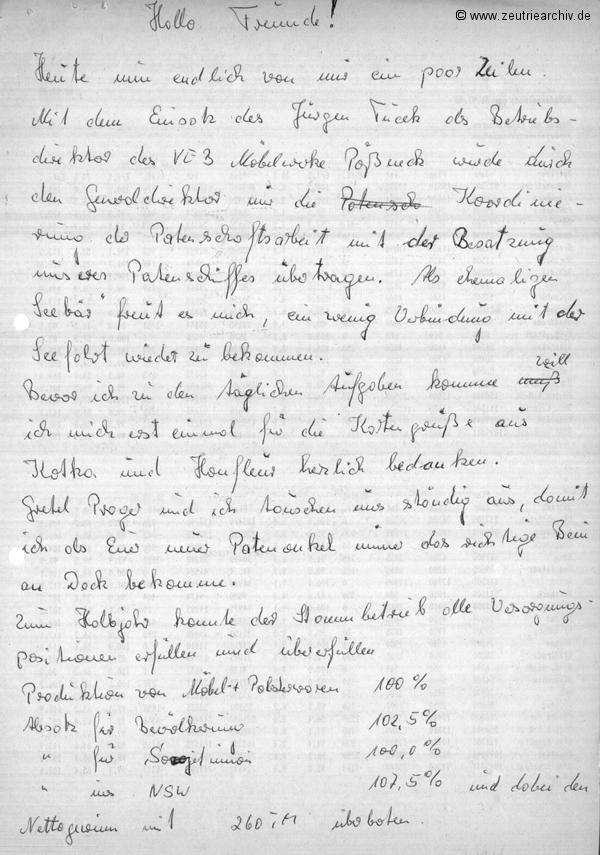 © www.zeutriearchiv.de
Hallo Freunde!
Heute nun endlich von mir ein paar Zeilen.
Mit dem Einsatz des Jürgen Tucek als Betriebs-
direktor des VEB Möbelwerke Pößneck wurde durch
den Generaldirektor mir die Patensch Koordinie-
rung der Patenschaftsarbeit mit der Besatzung
unseres Patenschiffes übertragen. Als ehemaligen
Seebär" freut es mich, ein wenig Verbindung mit der
Seefahrt wieder zu bekommen.
will
Bevor ich zu den täglichen Aufgaben komme muß
ich mich erst einmal für die Kartengrüße aus
Kotka und Honfleur herzlich bedanken.
Gretel Prager und ich tauschen uns ständig aus, damit
ich als Euer neuer Patenonkel immer das richtige Bein
an Deck bekomme.
Zum Halbjahr konnte der Stammbetrieb alle Versorgungs-
positionen erfüllen und übererfüllen
Produktion von Möbel + Polsterwaren 100 %
Absatz für Bevölkerung 102,5 %
" für Sowjetunion 100,0 %
" ins NSW 107,5 % und dabei den
Nettogewinn mit 260 TM überboten.